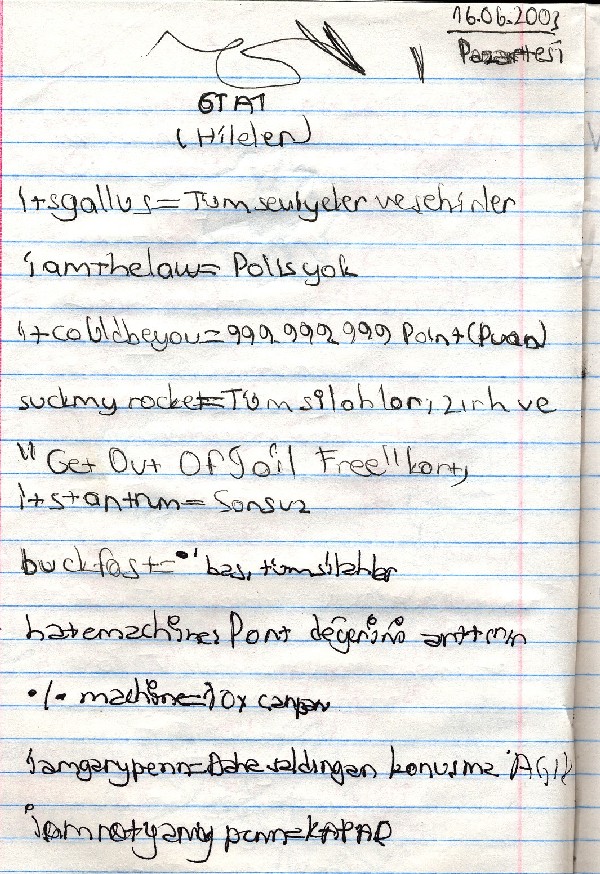 16.06.2003
Pazartesi
GTA1
(Hileler)
itsgallus=Tüm seviyeler ve şehirler
iamthelaw= Polis yok
itcouldbeyou=999.999.999 Point(Puan)
suckmyrocket=Tüm silahlar, zırh ve
"Get Out Of Jail Free" kartı,
itstantrum= Sonsuz
buckfast= * bas, tüm silahlar
hatemachine= Point değerini arttırın
./. machine=10x çarpan
iamgarypenn=Daha saldırgan konuşma AÇIK
iamnotgarypenn=KAPAR